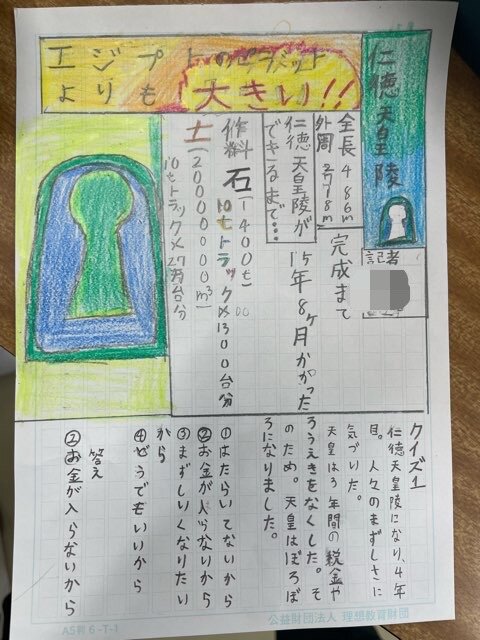 エジプトのピラミット
よりも大きい!!
仁徳天皇陵
記者
全長486m
外周2718m
仁徳天皇陵が
できるまで…
完成まで
15年8ヶ月かかった
作料
石(1400t)
10tトラック×1300台分
土(2000000m³)
10tトラック×27万台分
クイズ1
仁徳天皇陵になり、4年
目。人々のまずしさに
気づいた。
天皇は3年間の税金や
ろうえきをなくした。そ
のため。天皇はぼろぼ
ろになりました。
①はたらいてないから
②お金が入らないから
③まずしくなりたい
から
④どうでもいいから
答え
②お金が入らないから
A5判 6-T-1
公益財団法人 理想教育財団